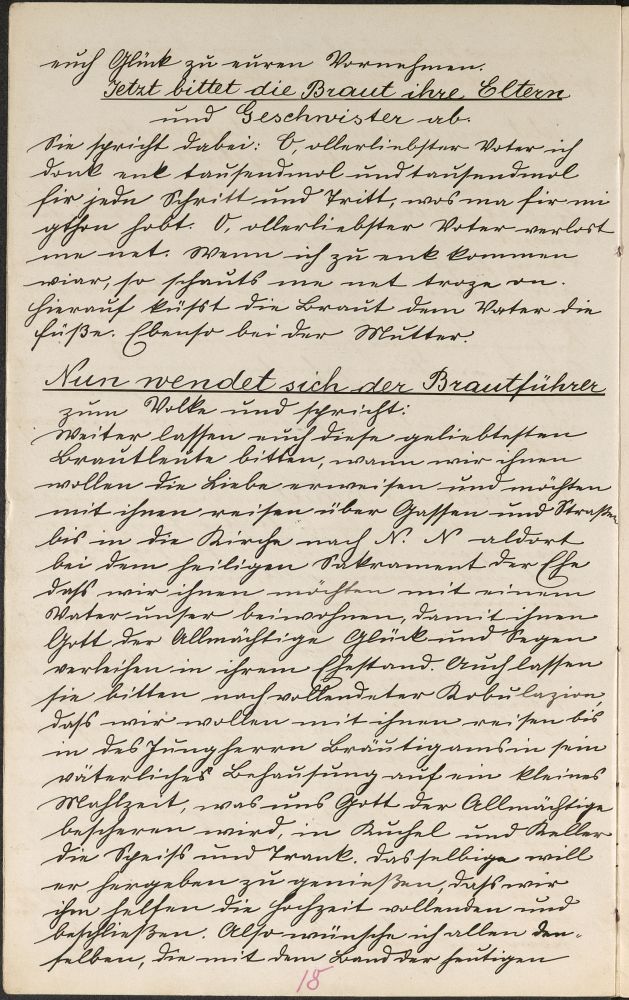 euch Glück zu euren Vornehmen.
Jetzt bittet die Braut ihre Eltern
und Geschwister ab.
Sie spricht dabei: O, ollerliebster Voter ich
donk enk tausendmol und tausendmol
fir jedn Schritt und Tritt, wos ma fir mi
gthon hobt. O, ollerliebster Voter verlost
me net. Wenn ich zu enk kommen
wiar, so schauts me net troze on.
Hierauf küßt die Braut dem Vater die
Füße. Ebenso bei der Mutter.
Nun wendet sich der Brautführer
zum Volke und spricht:
Weiter lassen euch diese geliebtesten
Brautleute bitten, wann wir ihnen
wollen die Liebe erweisen und möchten
mit ihnen reisen über Gassen und Straßen
bis in die Kirche nach N. N aldort
bei dem heiligen Sakrament der Ehe
daß wir ihnen möchten mit einem
Vater unser beiwohnen, damit ihnen
Gott der Allmächtige Glück und Segen
verleihen in ihrem Ehestand. Auch lassen
sie bitten nach vollendeter Kobulazion
daß wir wollen mit ihnen reisen bis
in des Jungherrn Bräutigams in sein
väterliches Behausung auf ein kleines
Mahlzeit, was uns Gott der Allmächtige
bescheren wird, in Kuchel und Keller
die Speiß und Trank. Dasselbige will
er hergeben zu genießen, daß wir
ihm helfen die Hochzeit vollenden und
beschließen. Also wünsche ich allen den-
selben, die mit dem Band der heutigen
18